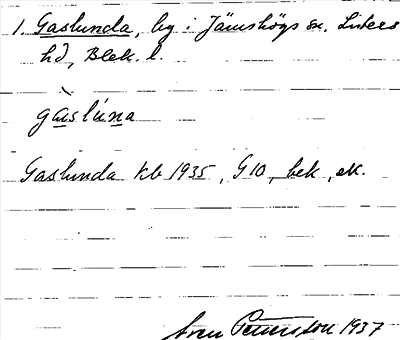 1. Gaslunda, by i Jämshögs sn. Listers
hd, Blek. l.
gàslúna
Gaslunda kb 1935, G10, bek, ek.
Sven Pettersson 1937